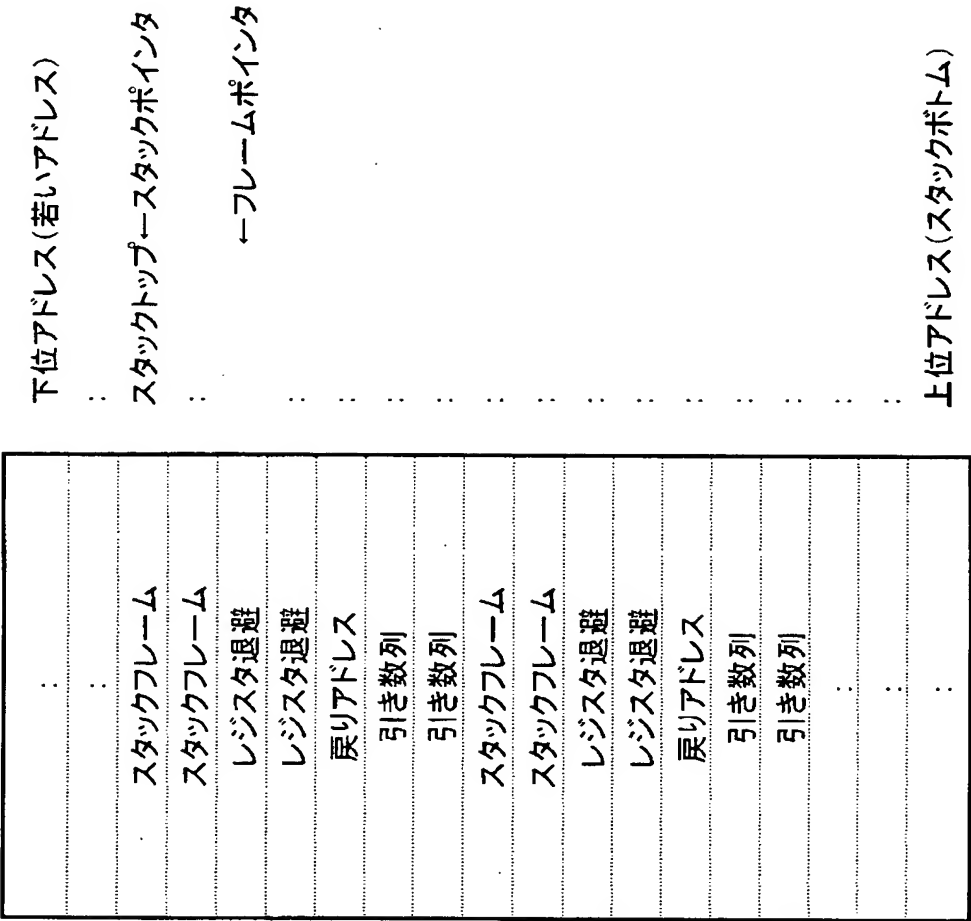 : 下位アドレス(若いアドレス)
: :
スタックフレーム スタックトップ←スタックポインタ
スタックフレーム :
レジスタ退避 ←フレームポインタ
レジスタ退避 :
戻りアドレス :
引き数列 :
引き数列 :
スタックフレーム :
スタックフレーム :
レジスタ退避 :
レジスタ退避 :
戻りアドレス :
引き数列 :
引き数列 :
: :
: :
: 上位アドレス(スタックボトム)